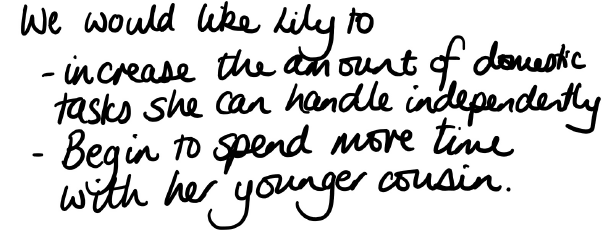 We would like Lily to
- increase the amount of domestic
tasks she can handle independently
- Begin to spend more time
with her younger cousin.